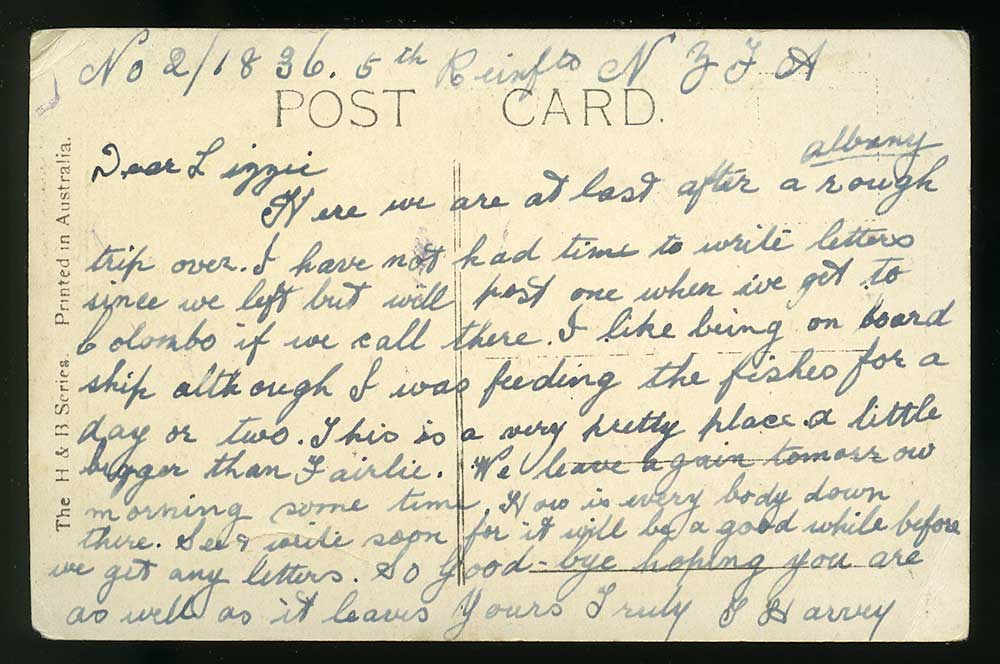 No 2/1836. 5th Reinfts N Z F A
POST CARD.
Albany
Dear Lizzie
Here we are at last after a rough
trip over. I have not had time to write letters
since we left but will post one when we get to
Colombo if we call there. I like being on board
ship although I was feeding the fishes for a
day or two. This is a very pretty place a little
bigger than Fairlie. We leave again tomorrow
morning some time. How is every body down
there. See & write soon for it will be a good while before
we get any letters. So good-bye hoping you are
as well as it leaves Yours Truly J Harvey
The H & B Series. Printed in Australia.